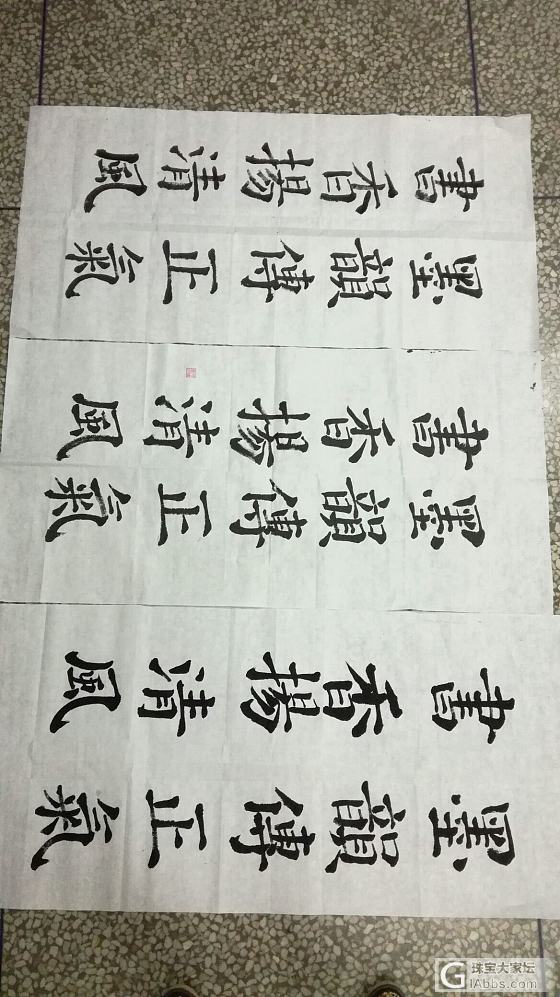 墨韻傳正氣
書香揚清風
墨韻傳正氣
書香揚清風
墨韻傳正氣
書香揚清風
珠宝大家坛
GIAbbs.com